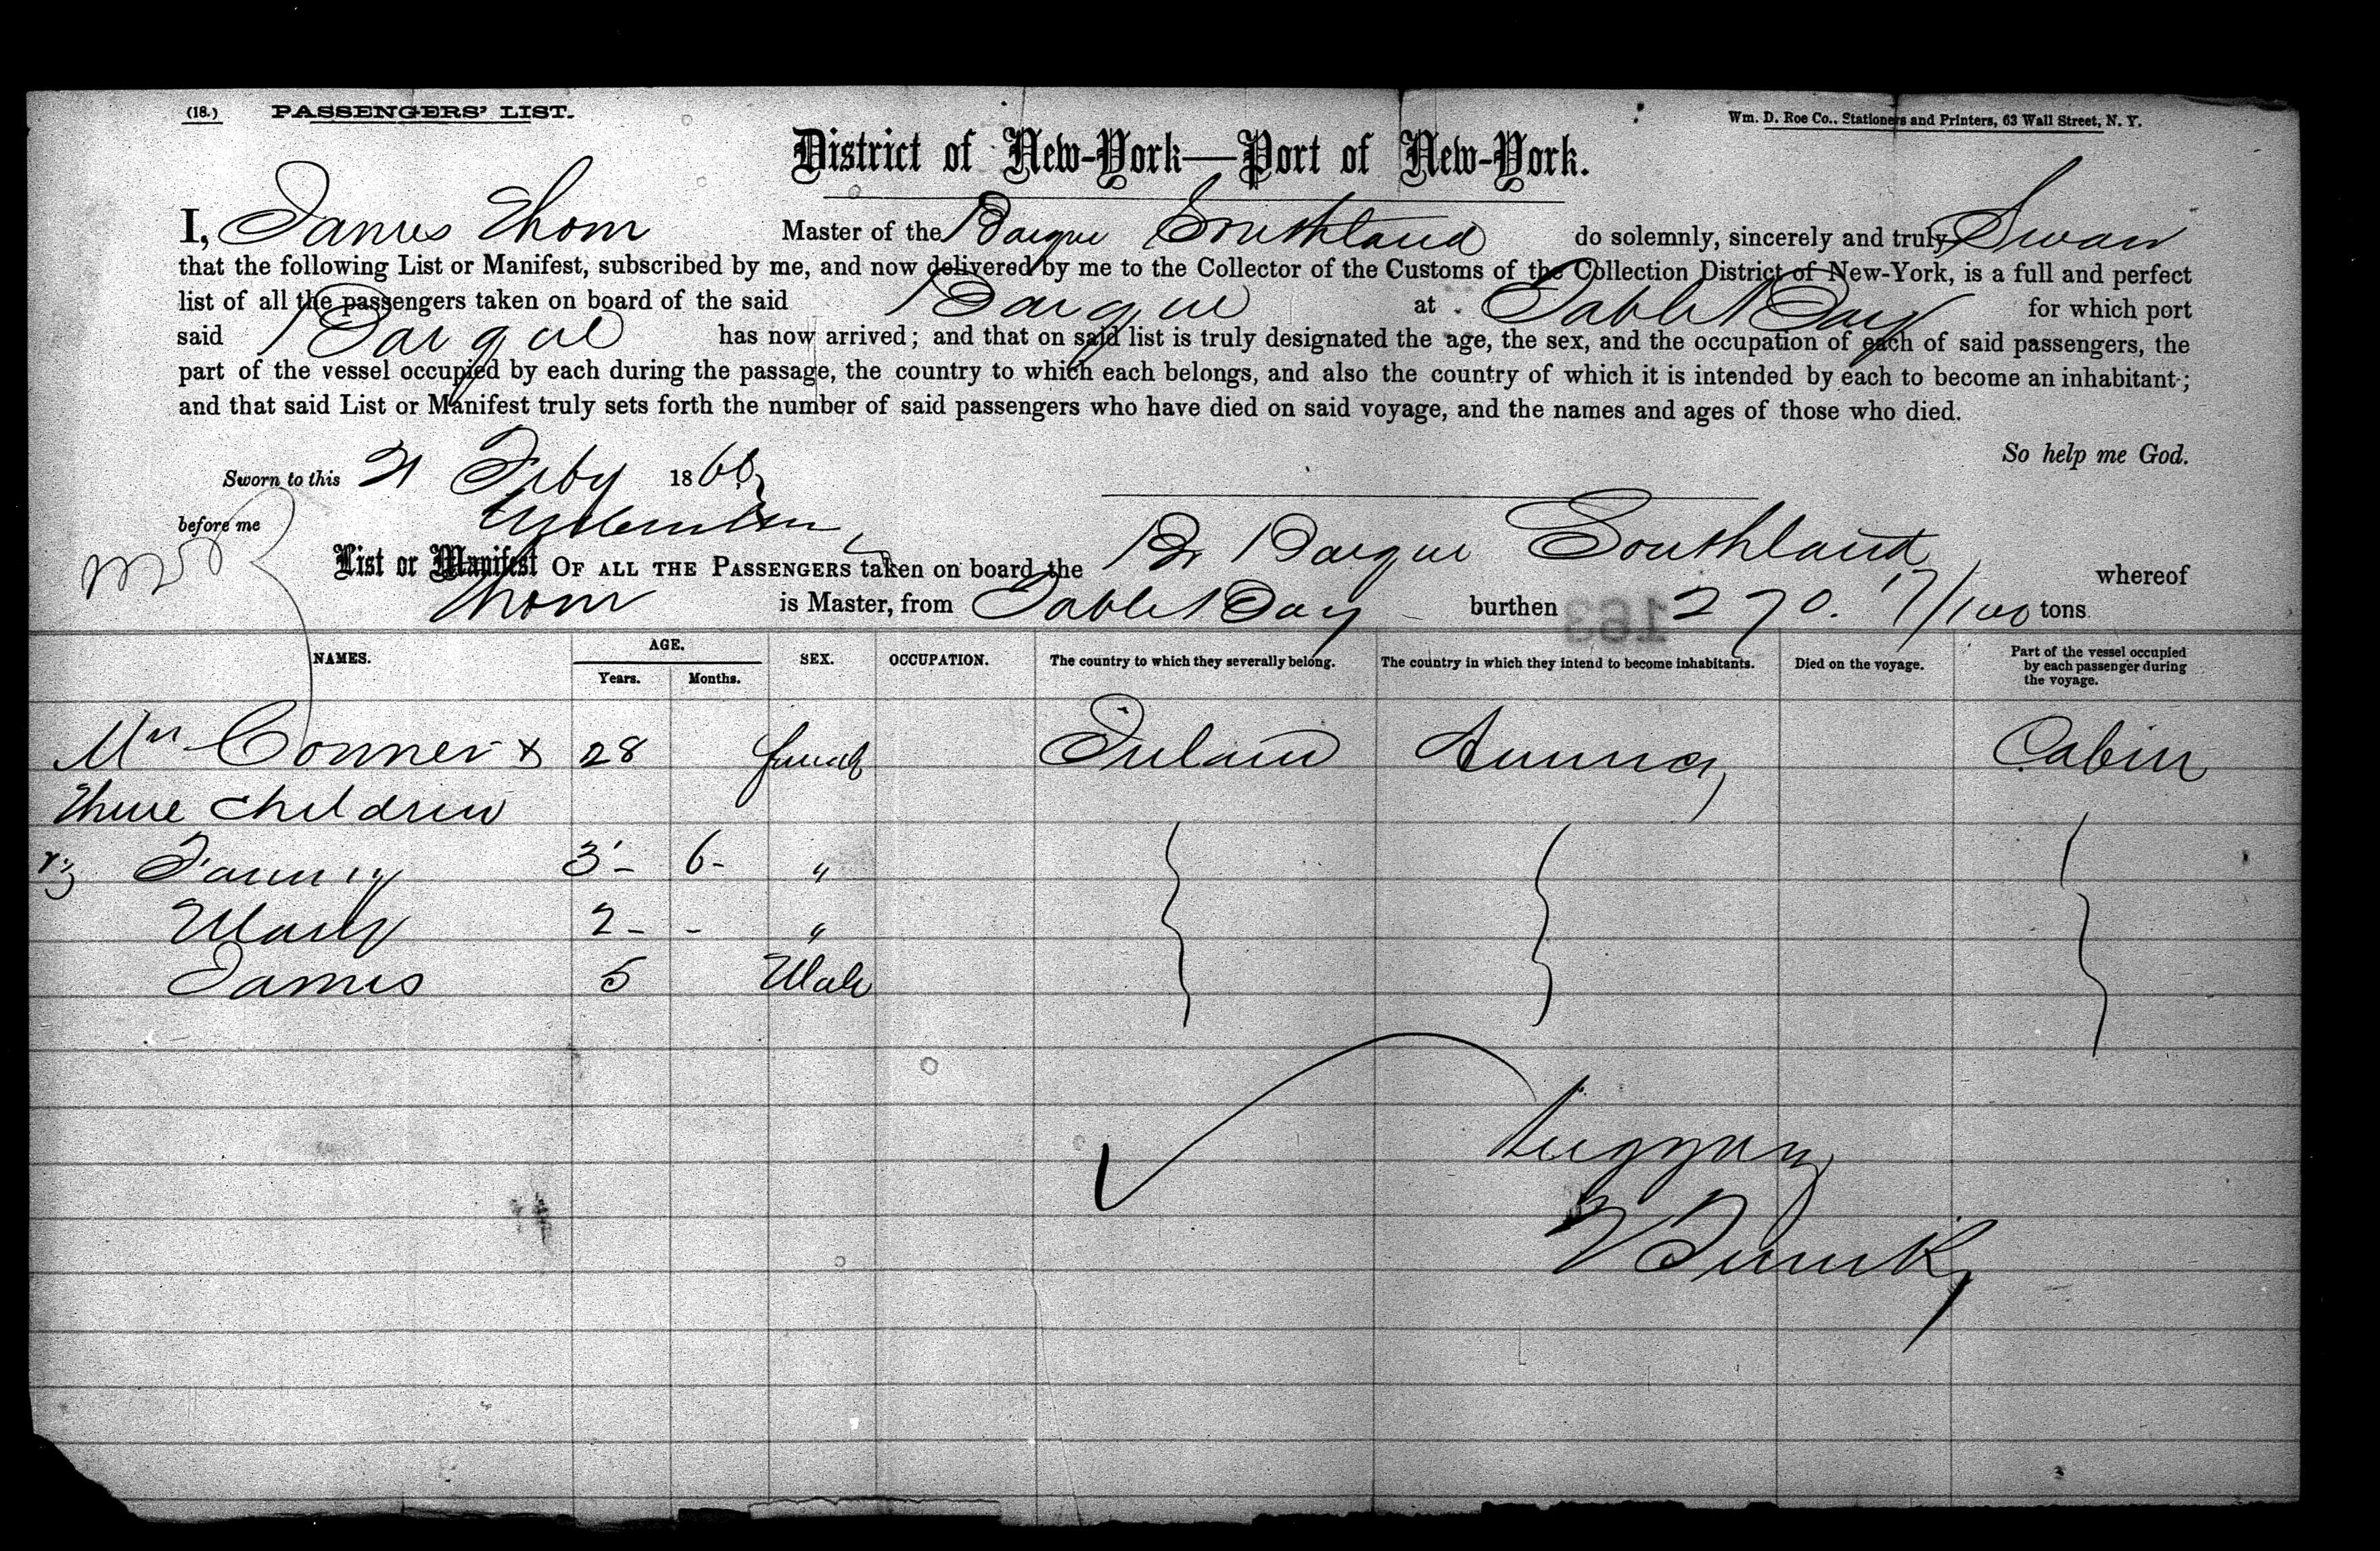 (18.) PASSENGERS' LIST. Wm. D. Roe Co., Stationers and Printers, 63 Wall Street, N. Y.
District of New-York—Port of New-York.
I, James Thom Master of the Barque Southland do solemnly, sincerely and truly Swear
that the following List or Manifest, subscribed by me, and now delivered by me to the Collector of the Customs of the Collection District of New-York, is a full and perfect
list of all the passengers taken on board of the said Barque at Table Bay for which port
said Barque has now arrived; and that on said list is truly designated the age, the sex, and the occupation of each of said passengers, the
part of the vessel occupied by each during the passage, the country to which each belongs, and also the country of which it is intended by each to become an inhabitant;
and that said List or Manifest truly sets forth the number of said passengers who have died on said voyage, and the names and ages of those who died.
So help me God.
Sworn to this 21 Feby 1866
before me
List or Manifest OF ALL THE PASSENGERS taken on board the Br Barque Southland whereof
Thom is Master, from Table Bay burthen 270. 17/100 tons.
163
NAMES. AGE. Years. Months. SEX. OCCUPATION. The country to which they severally belong. The country in which they intend to become inhabitants. Died on the voyage. Part of the vessel occupied by each passenger during the voyage.
Mrs Conner & 28 female Ireland Cabin
Three Children
viz Fanny 3 - 6 - "
Mary 2 - - "
James 5 Male